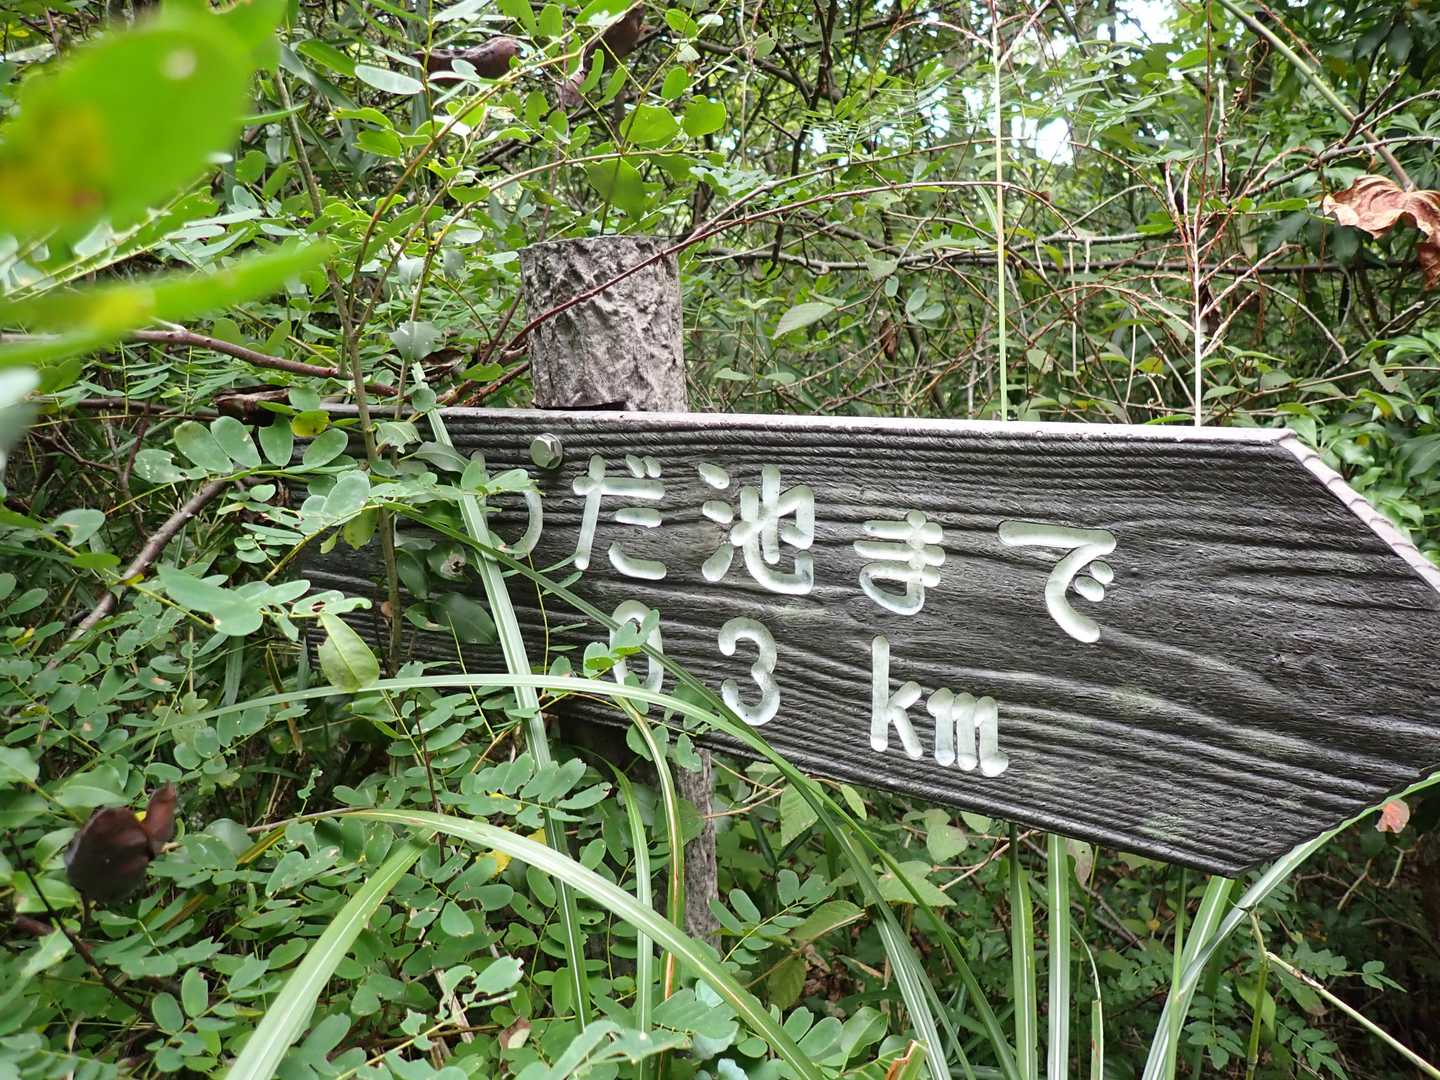 つだ池まで
0.3 km